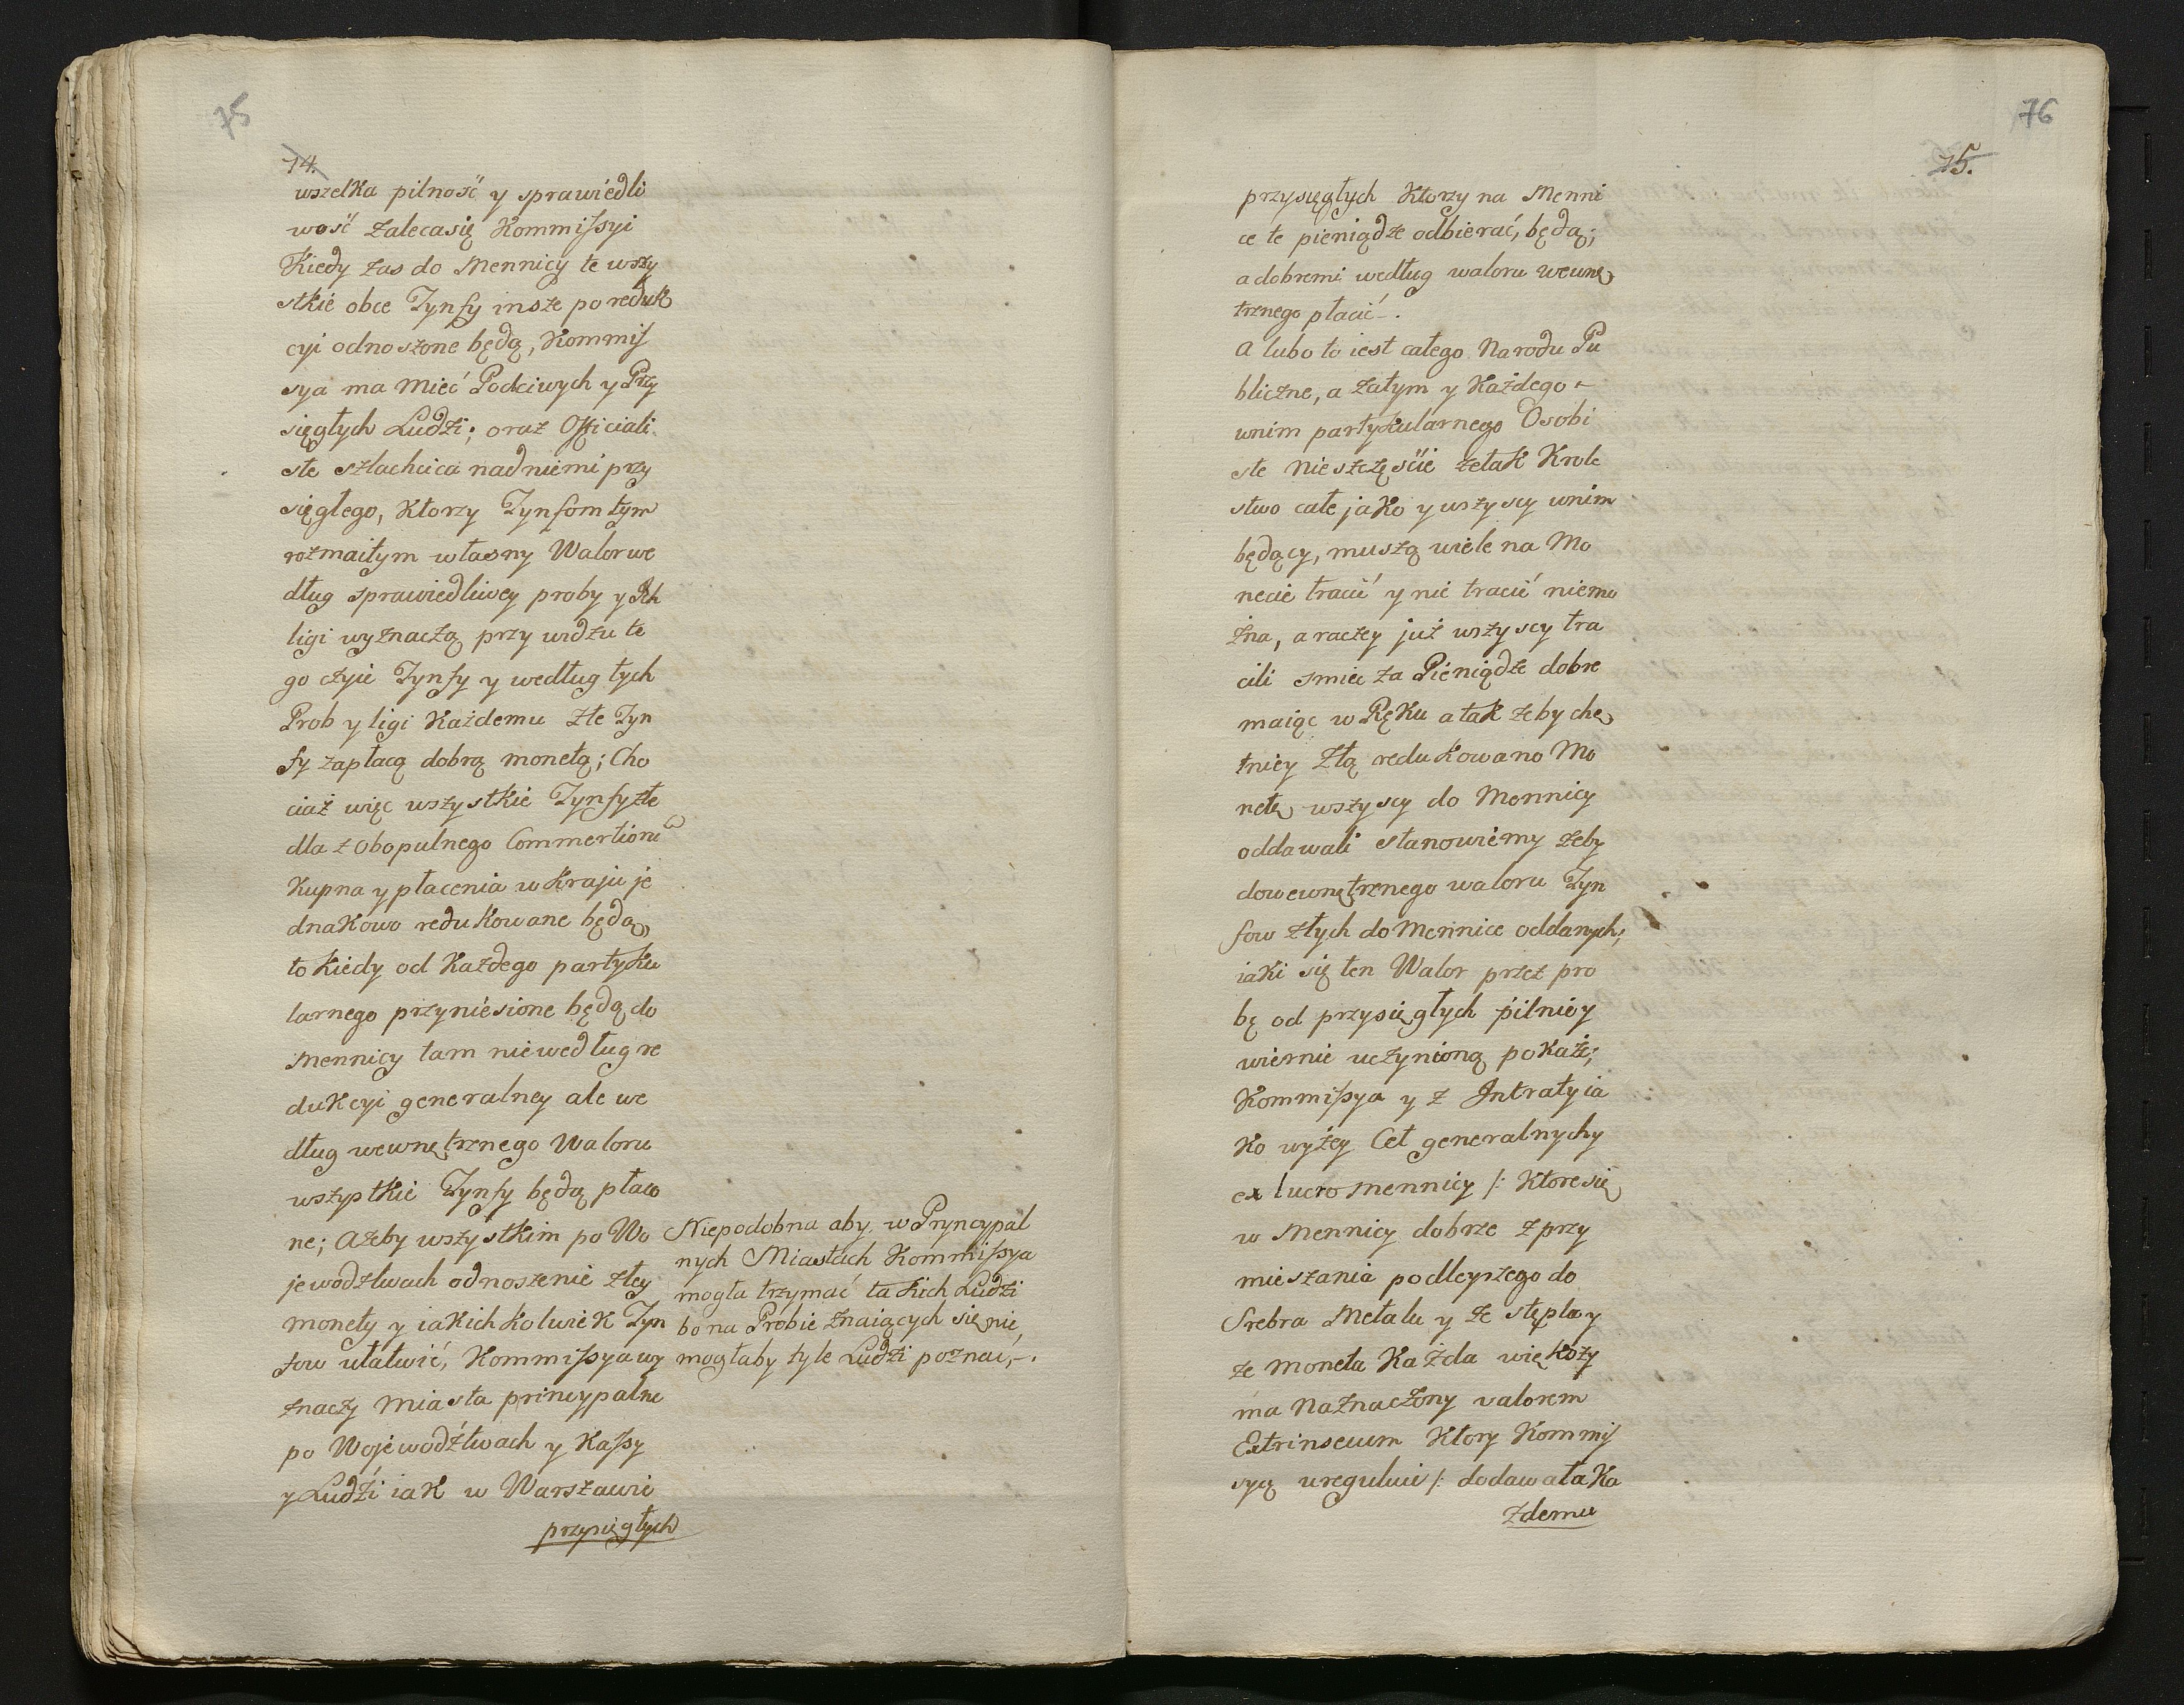 75
74.
wszelka pilność y sprawiedli
wość zaleca się Kommissyi
Kiedy zas do Mennicy te wszy
stkie obce Tynfy insze po reduk
cyi odnoszone będą, Kommis
sya ma mieć Podciwych y Przy
sięgłych Ludzi; oraz Officiali
ste szlachcica nad niemi przy
sięgłego, Ktorzy Tynfom tym
rozmaitym własny Walor we
dług sprawiedliwey proby y Ich
ligi wyznaczą przy widzu te
go czyie Tynfy y według tych
Prob y ligi Każdemu złe Tyn
fy zapłacą dobrą monetą; Cho
ciaż więc wszystkie Tynfy złe
dla zobopulnego Commertium
Kupna y płacenia w Kraju je
dnakowo redukowane będą,
to kiedy od Każdego partyku
larnego przyniesione będą do
Mennicy tam nie według re
dukcyi generalney ale we
dług wewnętrznego Waloru
wszystkie Tynfy będą płaco
ne; Ażeby wszystkim po Wo
jewodztwach odnoszenie złey
monety y iakichkolwiek Tyn
fow ułatwić, Kommissya wy
znaczy Miasta principalne
po Wojewodźtwach y Kassy
y Ludźi iak w Warszawie
przysięgłych
Niepodobna aby w Pryncypal
nych Miastach Kommissya
mogła trzymać takich Ludzi
bo na Probie znaiących się nie
mogłaby tyle Ludzi poznać,-.
76
75.
przysięgłych Ktorzy na Menni
ce te pieniądze odbierać, będą;
a dobremi według waloru wewnę
trznego płacić-.
A lubo to iest całego Narodu Pu
bliczne, a zatym y Każdego
w nim partykularnego Osobi
ste nieszczęście że tak Krole
stwo całe jako y wszyscy w nim
będący, muszą wiele na Mo
necie tracić y nie tracić niemo
żna, a raczey już wszyscy tra
cili smieć za Pieniądze dobre
maiąc w Ręku a tak żeby chę
tniey złą redukowano Mo
netę wszyscy do Mennicy
oddawali stanowiemy żeby
do wewnętrznego waloru Tyn
fow złych do Mennice oddanych;
iaki się ten Walor przez pro
bę od przysięgłych pilnie y
wiernie uczynioną pokaże;
Kommissya y z Intraty ia
ko wyżey Ceł generalnych y
ex lucro Mennicy /: Ktore się
w Mennicy dobrze z przy
mieszania podleyszego do
Srebra Metalu y ze stępla y
że moneta Każda większy
ma naznaczony valorem
Extrinsecum Ktory Kommis
syą reguluie /: dodawała Ka
żdemu